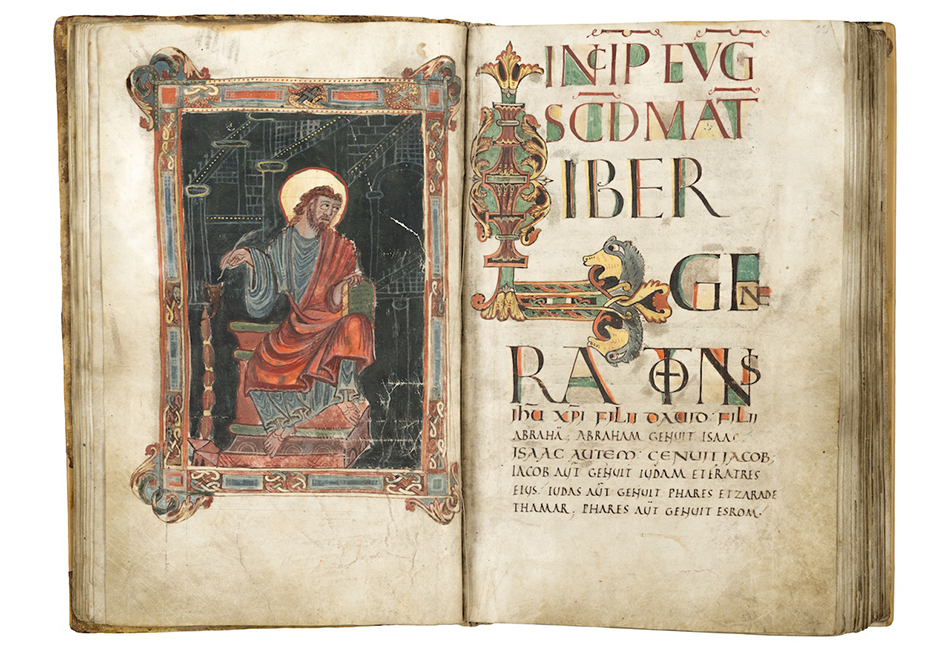 INCIP EVG
SCD MAT
LIBER
GEN
RATIONIS
IHU XPI FILII DAVID FILII
ABRAHĀ. ABRAHAM GENUIT ISAAC.
ISAAC AUTEM GENUIT JACOB.
IACOB AUT̄ GENUIT IUDAM ET FRATRES
EIUS. IUDAS AUT̄ GENUIT PHARES ET ZARA DE
THAMAR. PHARES AUT̄ GENUIT ESROM.